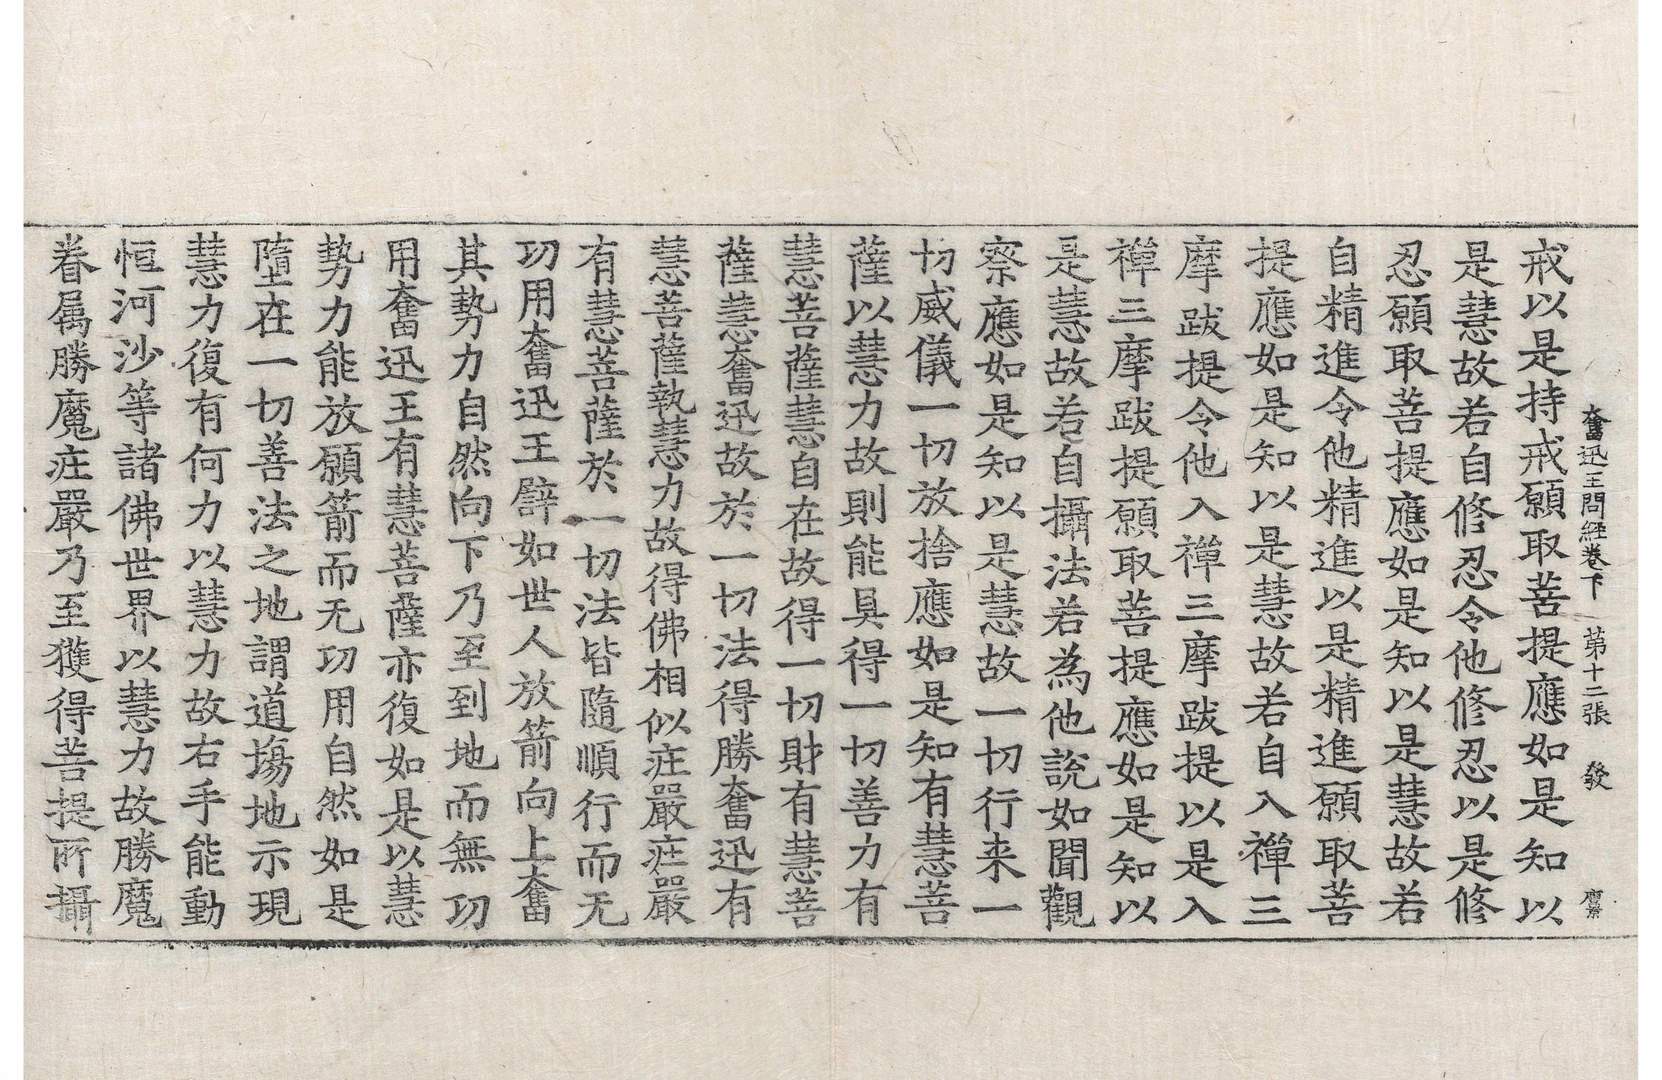 奮迅王問經卷下　第十二張　發
戒以是持戒願取菩提應如是知以
是慧故若自修忍令他修忍以是修
忍願取菩提應如是知以是慧故若
自精進令他精進以是精進願取菩
提應如是知以是慧故若自入禪三
摩跋提令他入禪三摩跋提以是入
禪三摩跋提願取菩提應如是知以
是慧故若自攝法若為他說如聞觀
察應如是知以是慧故一切行来一
切威儀一切放捨應如是知有慧菩
薩以慧力故則能具得一切善力有
慧菩薩慧自在故得一切財有慧菩
薩慧奮迅故於一切法得勝奮迅有
慧菩薩執慧力故得佛相似庄嚴庄嚴
有慧菩薩於一切法皆隨順行而无
功用奮迅王譬如世人放箭向上奮
其勢力自然向下乃至到地而無功
用奮迅王有慧菩薩亦復如是以慧
勢力能放願箭而无功用自然如是
墮在一切善法之地謂道場地示現
慧力復有何力以慧力故右手能動
恒河沙等諸佛世界以慧力故勝魔
眷属勝魔庄嚴乃至獲得菩提所攝